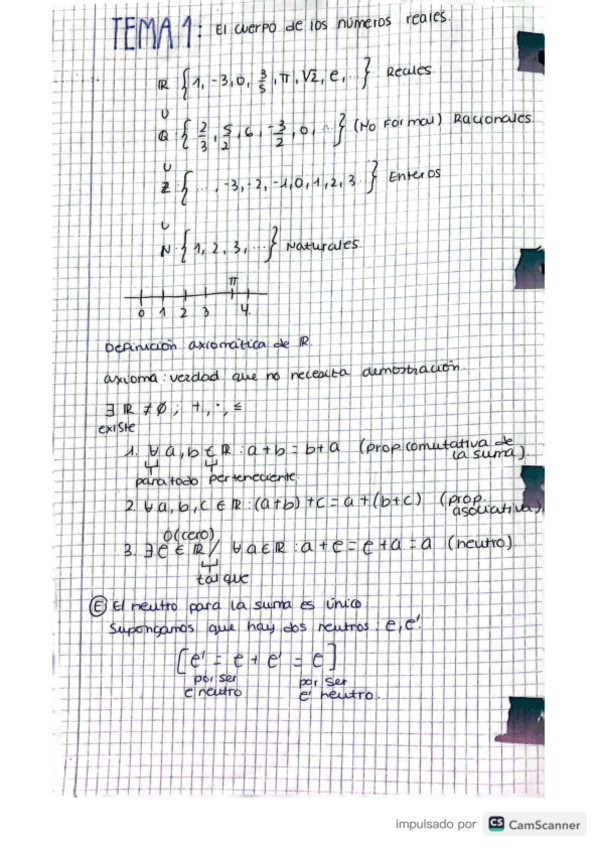 TEMA 1: El cuerpo de los números reales.
ℝ {1, -3, 0, 3/5, π, √2, e, ...} Reales
∪
Q {2/3, 5/2, 6, -3/2, 0, ...} (No Formal) Racionales
∪
Z {..., -3, -2, -1, 0, 1, 2, 3...} Enteros
∪
N {1, 2, 3, ...} Naturales
π
0 1 2 3 4
Definición axiomática de ℝ.
axioma: verdad que no necesita demostración.
∃ ℝ ≠ ∅; +, ·, ≤
existe
1. ∀ a, b ∈ ℝ : a + b = b + a (prop comutativa de
la suma).
para todo perteneciente
2. ∀ a, b, c ∈ ℝ : (a + b) + c = a + (b + c) (prop.
asociativa).
0 (cero)
3. ∃ e ∈ ℝ / ∀ a ∈ ℝ : a + e = e + a = a (neutro)
tal que
Ⓔ El neutro para la suma es único
Supongamos que hay dos neutros: e, e'.
[e' = e + e' = e]
por ser por ser
e neutro e' neutro.
impulsado por CS CamScanner